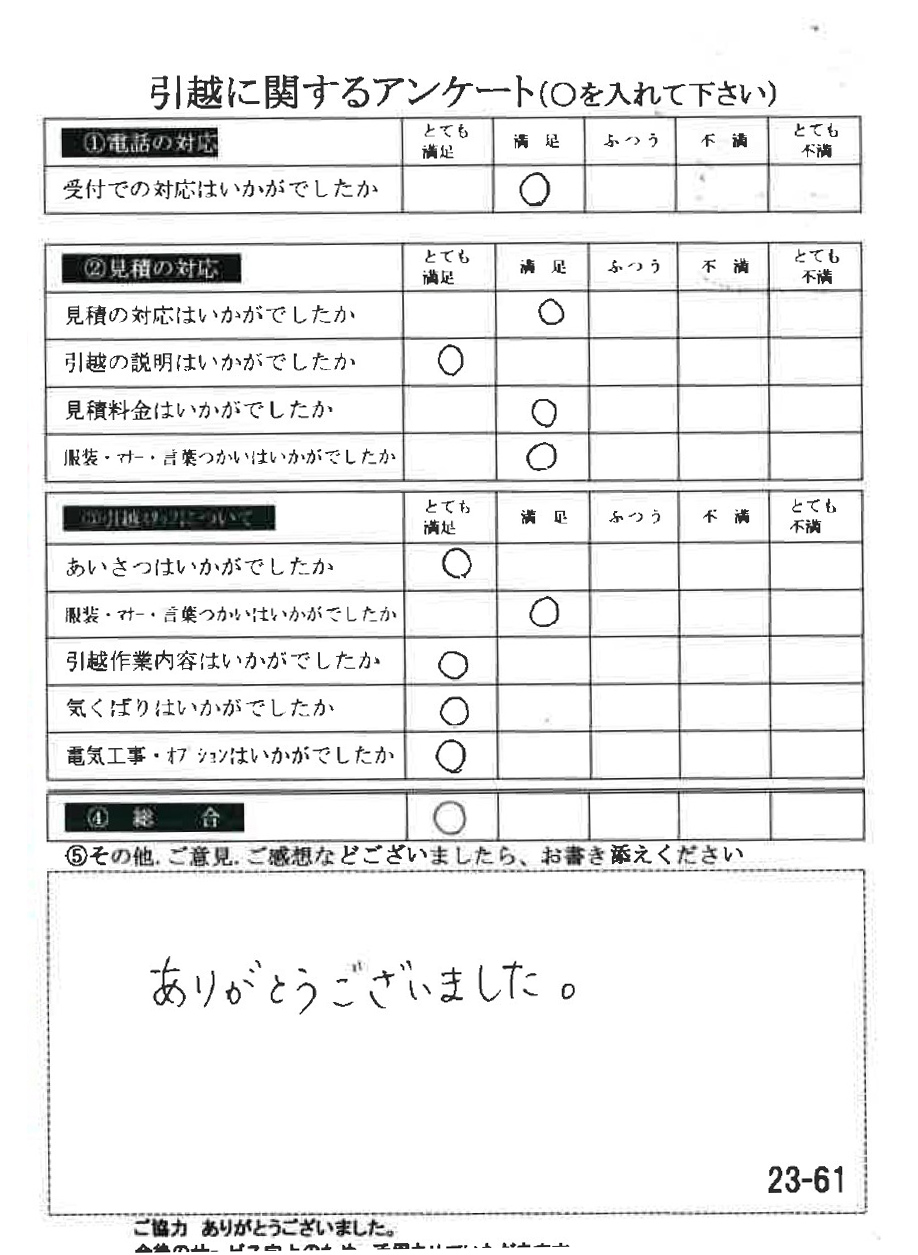 引越に関するアンケート(〇を入れて下さい)
①電話の対応 とても満足 満足 ふつう 不満 とても不満
受付での対応はいかがでしたか 〇
②見積の対応 とても満足 満足 ふつう 不満 とても不満
見積の対応はいかがでしたか 〇
引越の説明はいかがでしたか 〇
見積料金はいかがでしたか 〇
服装・マナー・言葉つかいはいかがでしたか 〇
③引越スタッフについて とても満足 満足 ふつう 不満 とても不満
あいさつはいかがでしたか 〇
服装・マナー・言葉つかいはいかがでしたか 〇
引越作業内容はいかがでしたか 〇
気くばりはいかがでしたか 〇
電気工事・オプションはいかがでしたか 〇
④ 総 合 〇
⑤その他.ご意見.ご感想などございましたら、お書き添えください
ありがとうございました。
23-61
ご協力 ありがとうございました。